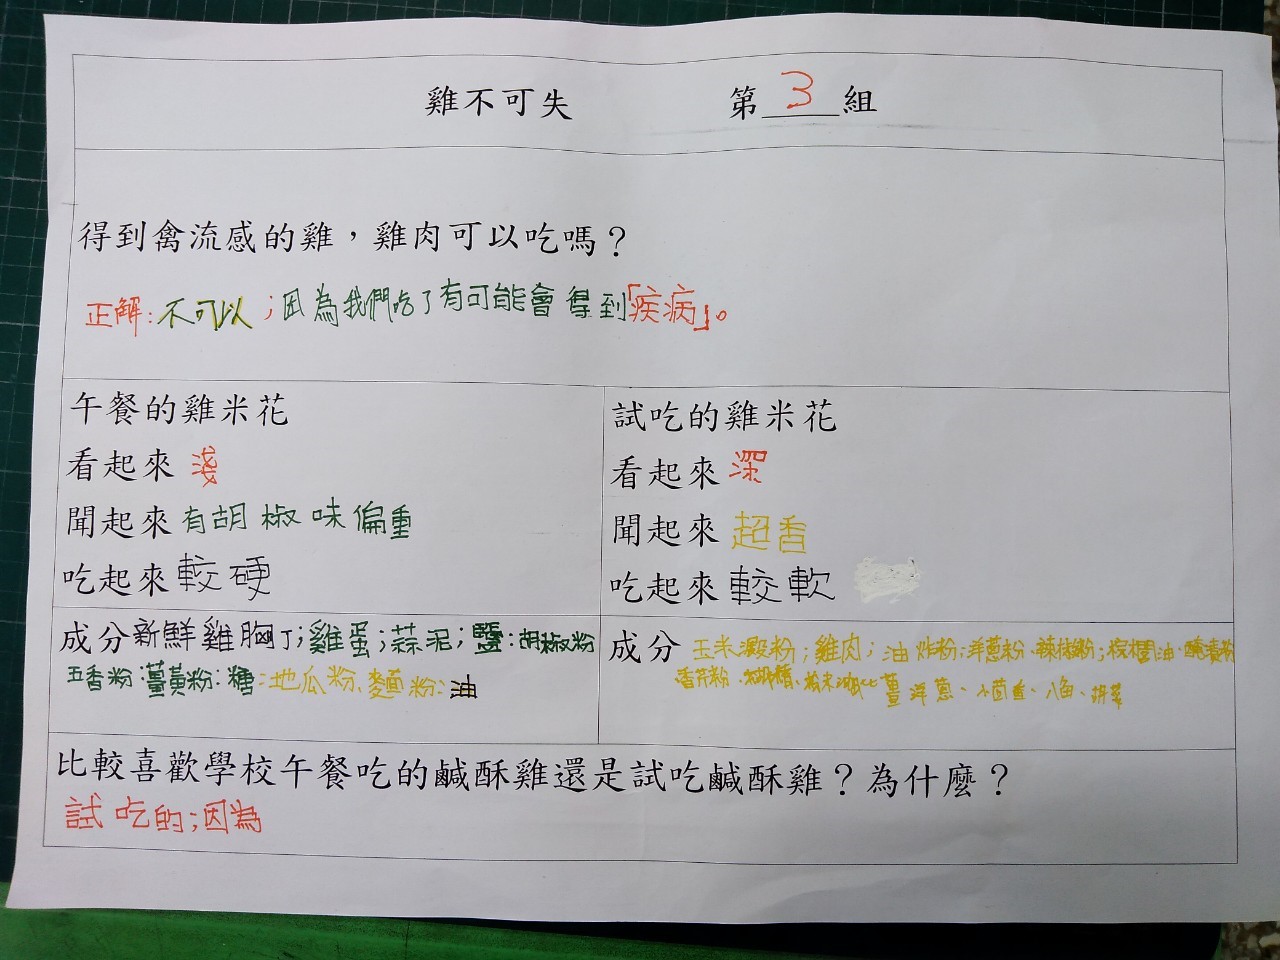 雞不可失 第3組
得到禽流感的雞，雞肉可以吃嗎？
正解:不可以;因為我們吃了有可能會得到「疾病」。
午餐的雞米花
看起來 淺
聞起來 有胡椒味偏重
吃起來 較硬
試吃的雞米花
看起來 深
聞起來 超香
吃起來 較軟
成分 新鮮雞胸丁;雞蛋;蒜泥;鹽:胡椒粉
五香粉:薑黃粉:糖:地瓜粉、麵粉:油
成分 玉米澱粉;雞肉;油炸粉:洋蔥粉、辣椒粉;棕櫚油、
香芹粉、薑洋蔥、小茴香、八角、
比較喜歡學校午餐吃的鹹酥雞還是試吃鹹酥雞？為什麼？
試吃的;因為